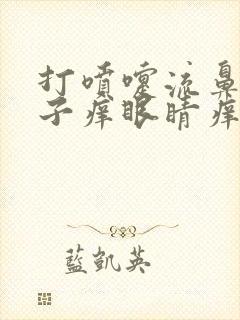 打噴嚏流鼻
子癢眼睛癢
藍凱英